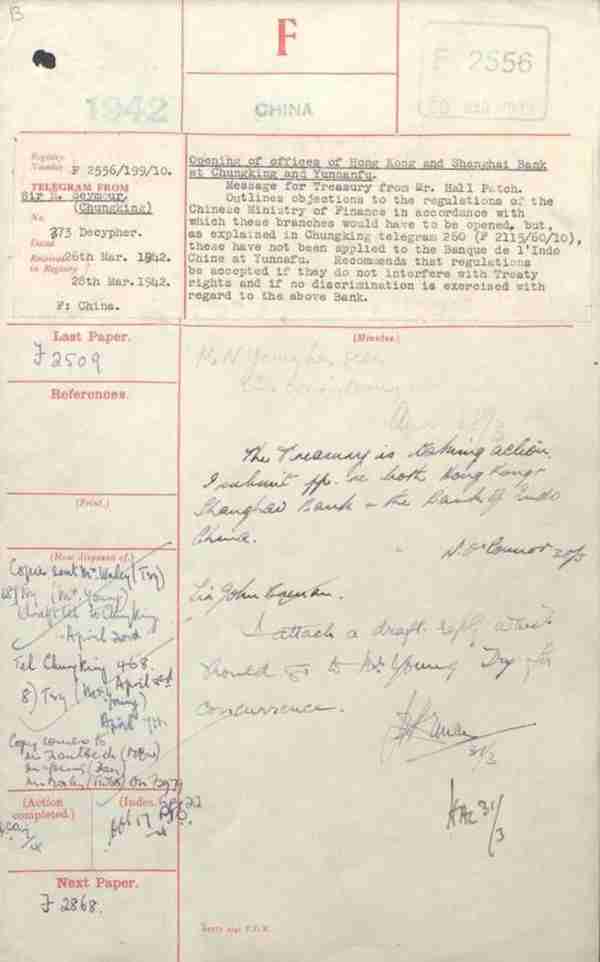 B
F
F 2556
1942
CHINA
Registry
Number
F 2556/199/10.
TELEGRAM FROM
Sir H. Seymour,
(Chungking)
No.
373 Decypher.
Dated
26th Mar. 1942.
Received
in Registry
28th Mar. 1942.
F: China.
Opening of offices of Hong Kong and Shanghai Bank
at Chungking and Yunnanfu.
Message for Treasury from Mr. Hall Patch.
Outlines objections to the regulations of the
Chinese Ministry of Finance in accordance with
which these branches would have to be opened, but,
as explained in Chungking telegram 260 (F 2115/60/10),
these have not been applied to the Banque de l'Indo
Chine at Yunnafu. Recommends that regulations
be accepted if they do not interfere with Treaty
rights and if no discrimination is exercised with
regard to the above Bank.
Last Paper.
F 2509
References.
(Print.)
(How disposed of.)
Copies sent Mr. Waley (Tsy)
(Mr. Young)
Chungking
April 2nd
Tel Chungking 468.
April 2nd
8) Tsy (Mr Young)
April 7th
Copy
(Action
completed.)
(Index.)
Next Paper.
F 2868.
(Minutes.)
Mr. N. Young has seen
28/3
The Treasury is taking action.
I submit pp. re both Hong Kong &
Shanghai Bank & the Bank of Indo
China.
N. O'Connor 30/3
Sir John Brenan.
I attach a draft reply which
should go to Mr Young Tsy for
concurrence.
31/3
31/3